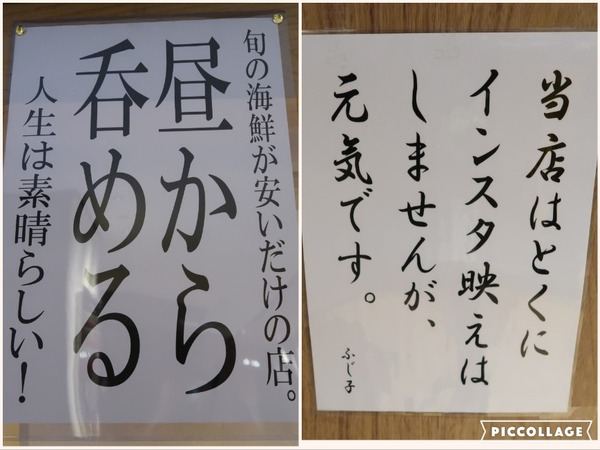 旬の海鮮が安いだけの店。
昼から
呑める
人生は素晴らしい！
当店はとくに
インスタ映えは
しませんが、
元気です。
ふじ子
PICCOLLAGE